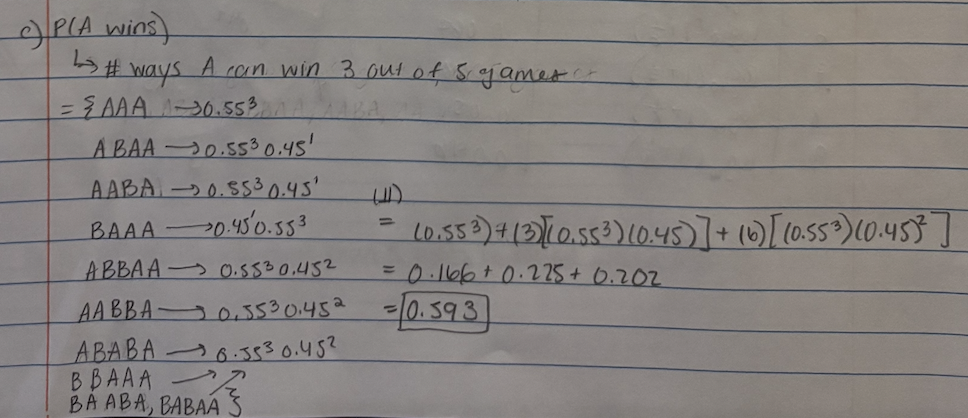 c) P(A wins)
↳ # ways A can win 3 out of 5 games
= { AAA → 0.55³
ABAA → 0.55³ 0.45¹
AABA → 0.55³ 0.45¹
BAAA → 0.45¹ 0.55³
ABBAA → 0.55³ 0.45²
AABBA → 0.55³ 0.45²
ABABA → 0.55³ 0.45²
BBAAA →
BAABA, BABAA }
(⊥⊥)
= (0.55³) + (3)[(0.55³)(0.45)] + (6)[(0.55³)(0.45)²]
= 0.166 + 0.225 + 0.202
= 0.593